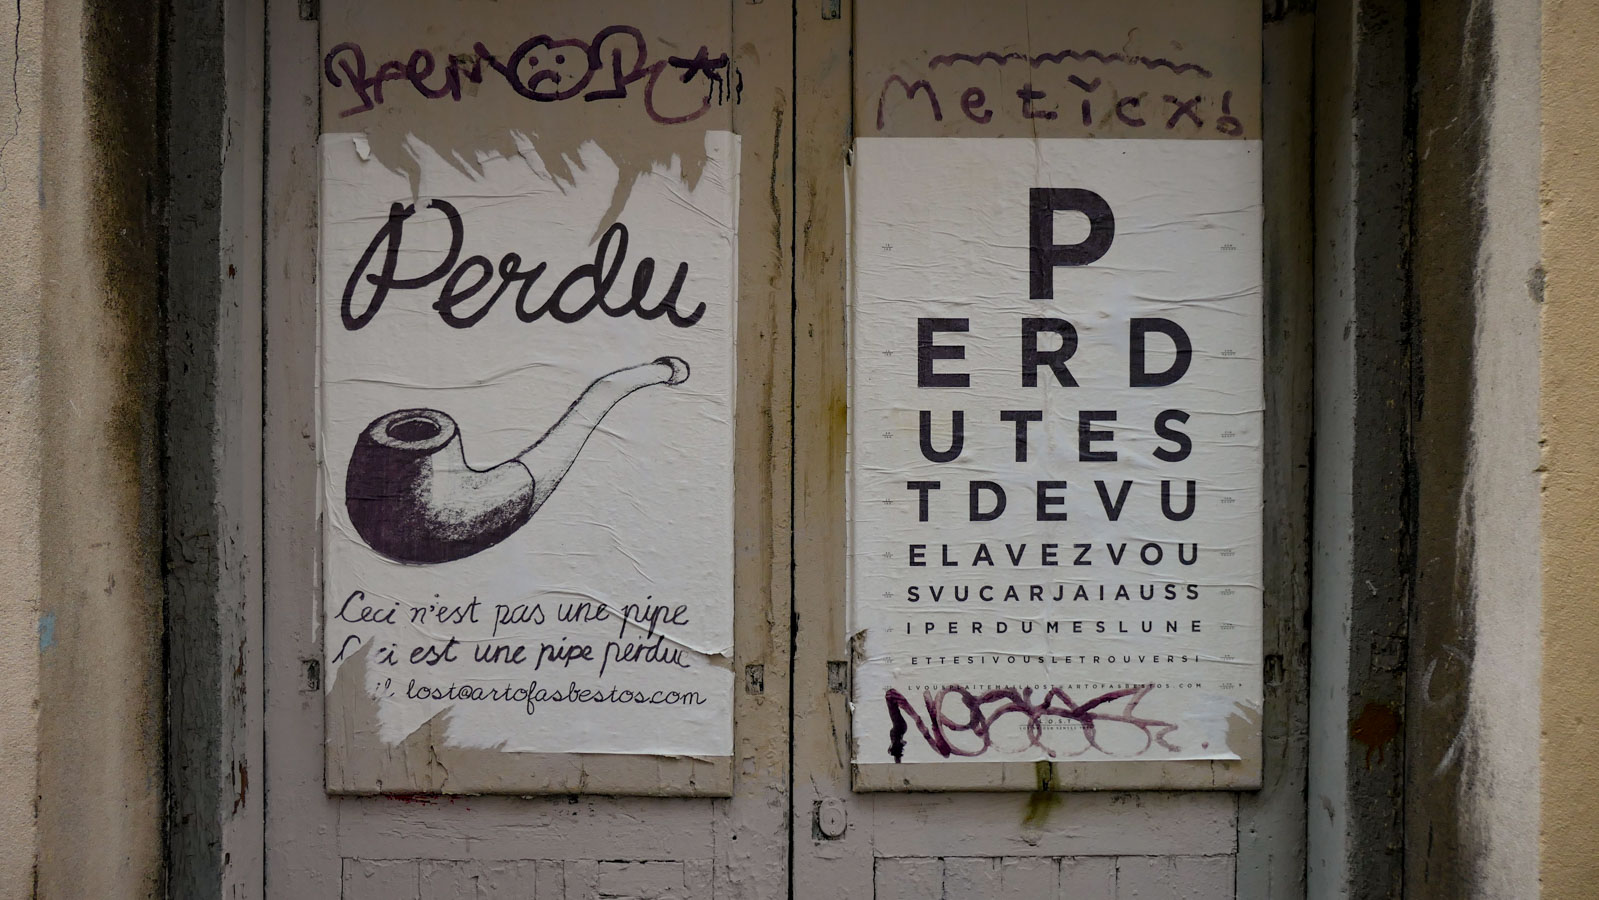 Perdu
Ceci n'est pas une pipe
Ceci est une pipe perdue
lost@artofasbestos.com
Meticx!
P
ERD
UTES
TDEVU
ELAVEZVOU
SVUCARJAIAUSS
IPERDUMESLUNE
ETTESIVOUSLETROUVERSI
LVOUSPLAITEMAILLOST@ARTOFASBESTOS.COM
LOST